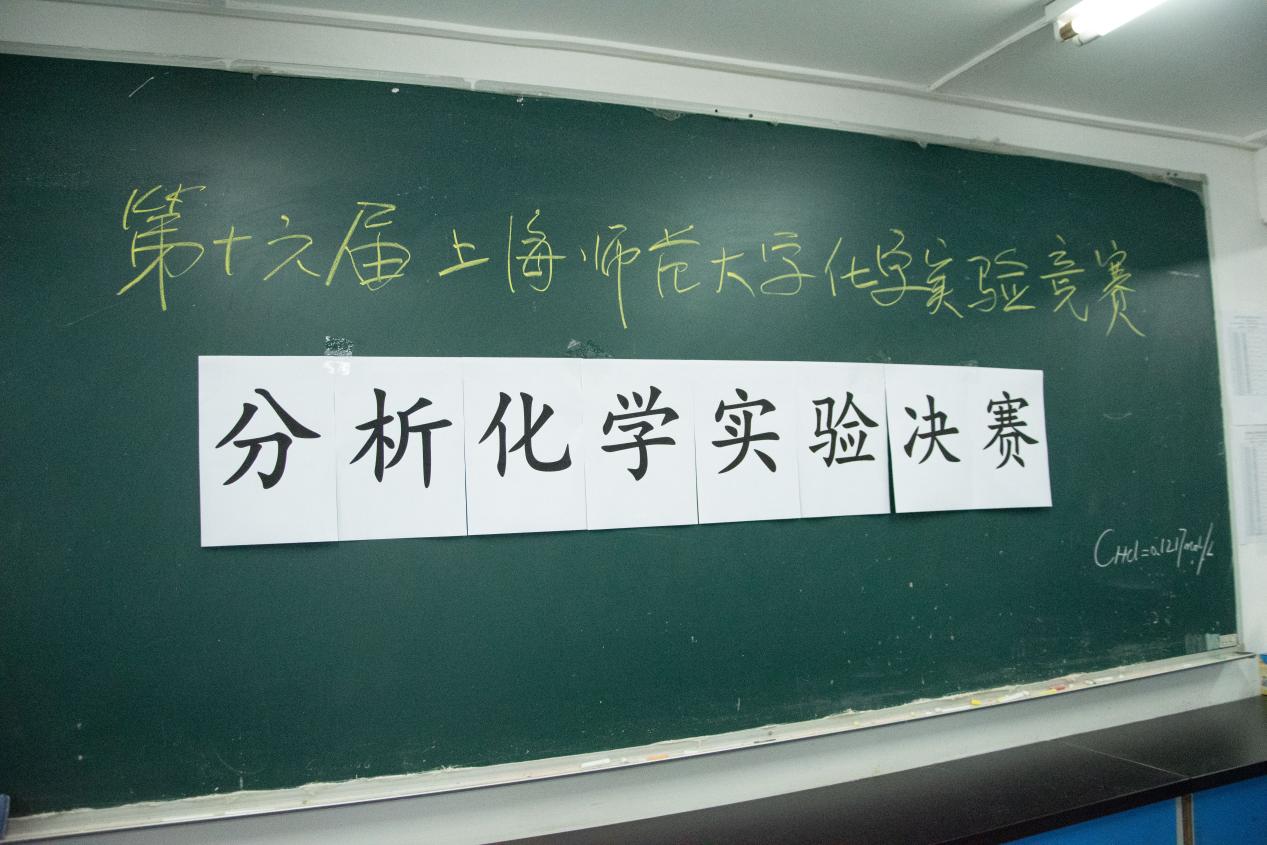 第十六届上海师范大学化学实验竞赛
分析化学实验决赛
CHCl=0.1217mol/L